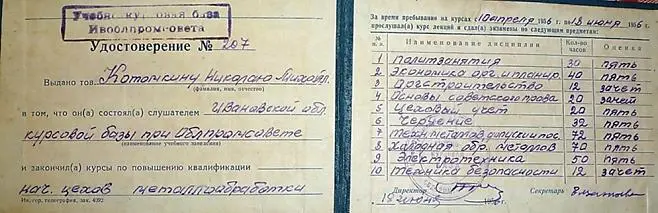 Учебно-курсовая база
Ивоблпромсовета
Удостоверение № 207
Выдано тов. Котомкину Николаю Михайл.
(фамилия, имя, отчество)
в том, что он(а) состоял(а) слушателем Ивановской обл.
курсовой базы при Облпромсовете
(наименование учебного заведения)
и закончил(а) курсы по повышению квалификации
нач. цехов металлообработки
Ив. гор. телеграфия, зак. 4392
За время пребывания на курсах с 10 апреля 1956 г. по 18 июня 1956 г.
прослушал(а) курс лекций и сдал(а) экзамены по следующим предметам:
№ п. п. Наименование дисциплин Кол-во часов Оценка
1 Политзанятия 30 пять
2 Экономика орг. и планир. 40 пять
3 Домстроительство 12 зачет
4 Основы советского права 20 зачет
5 Цеховый учет 20 пять
6 Черчение 32 пять
7 Техн. металлов, допуски и пос. 72 пять
8 Холодная обр. металлов 70 пять
9 Электротехника 50 пять
10 Техника безопасности 12 зачет
Директор
Секретарь
18 июня 1956 г.